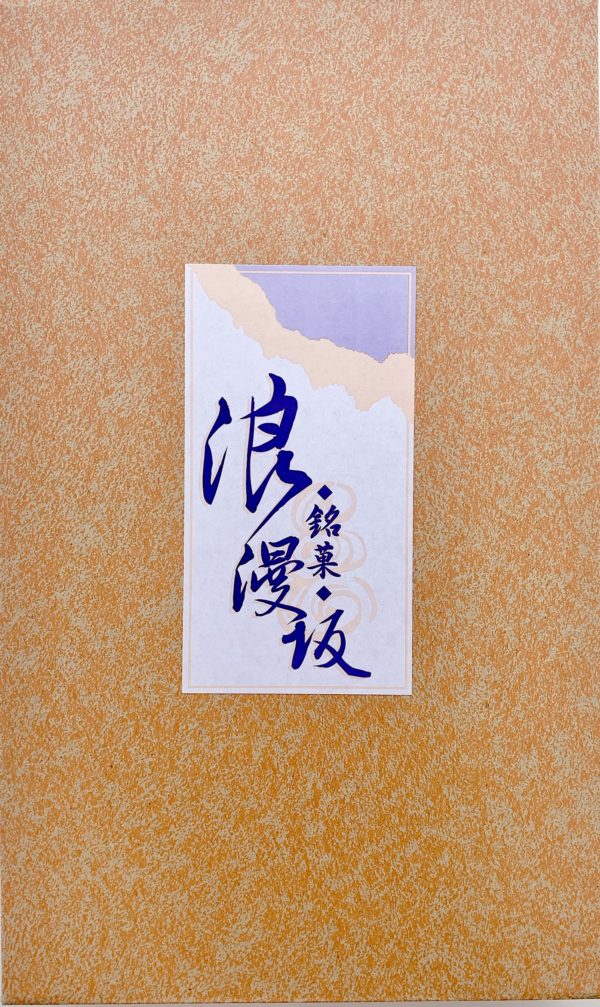 浪漫坂
◆銘菓◆